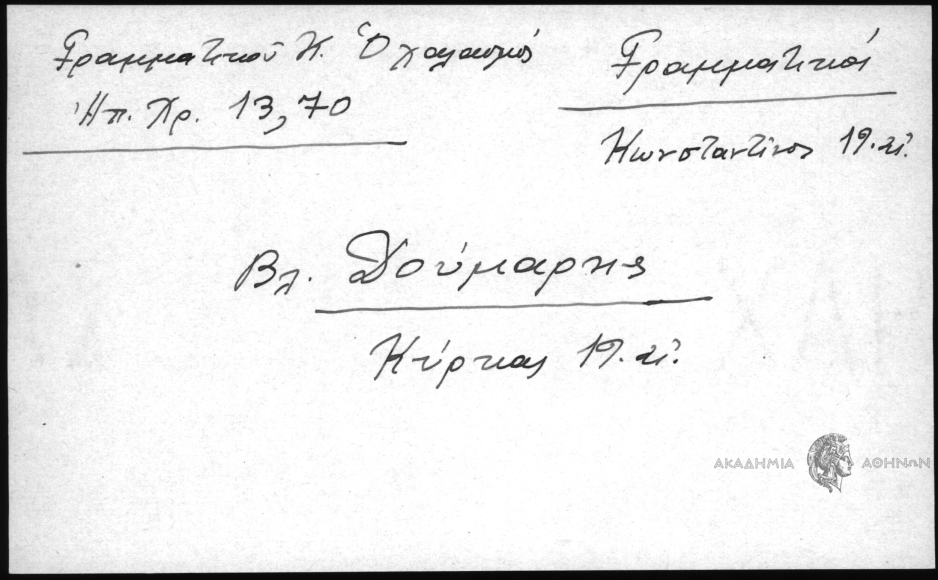 Γραμματικοῦ Κ. Ὁ χαλασμός
Ἠπ. Χρ. 13,70
Γραμματικός
Κωνσταντίνος 19. αἰ.
Βλ. Δούμαρης
Κύρκας 19. αἰ.
ΑΚΑΔΗΜΙΑ ΑΘΗΝΩΝ